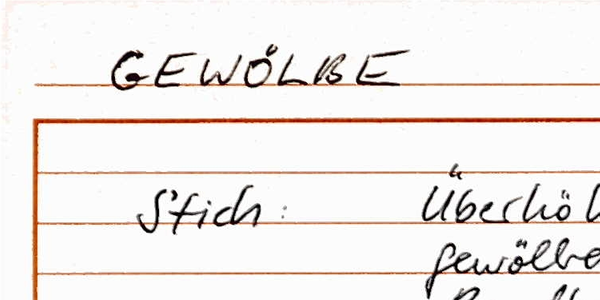 GEWÖLBE
Stich: Überhöh
gewölbe